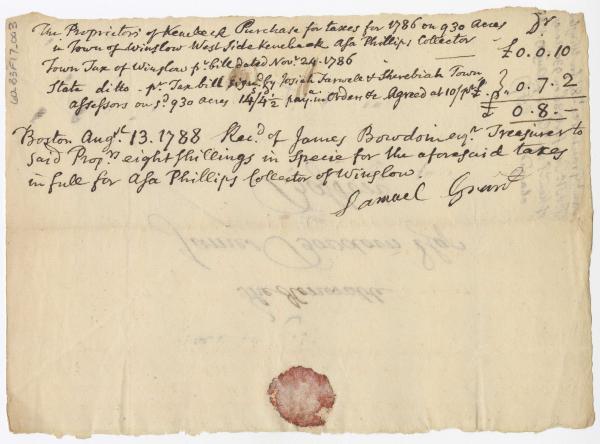 The Proprietors of Kenebeck Purchase for taxes for 1786 on 930 Acres Dr
in Town of Winslow West Side Kenebeck Asa Phillips Collector
Town Tax of Winslow pr bill dated Novr 24. 1786 £0.0.10
State ditto - pr Tax bill signed by Josiah Farwell & Town
Assessors on sd 930 acres 14/4½ paya in Orders Agreed at 10/ pr £ 0.7.2
£ 0.8.-
Boston Augst 13. 1788 Recd of James Bowdoin esqr Treasurer to
said Proprs eight Shillings in Specie for the aforesaid taxes
in full for Asa Phillips Collector of Winslow.
Samuel
The Honorable
James Bowdoin Esqr